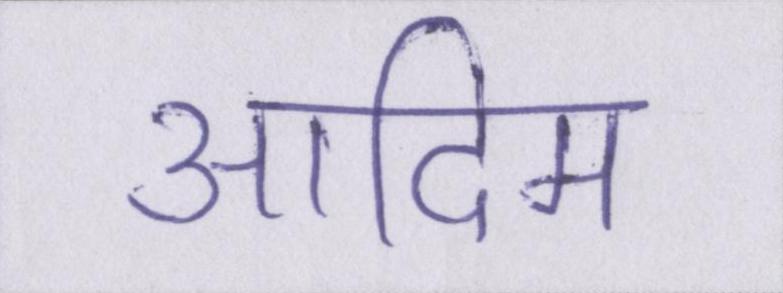 आदिम